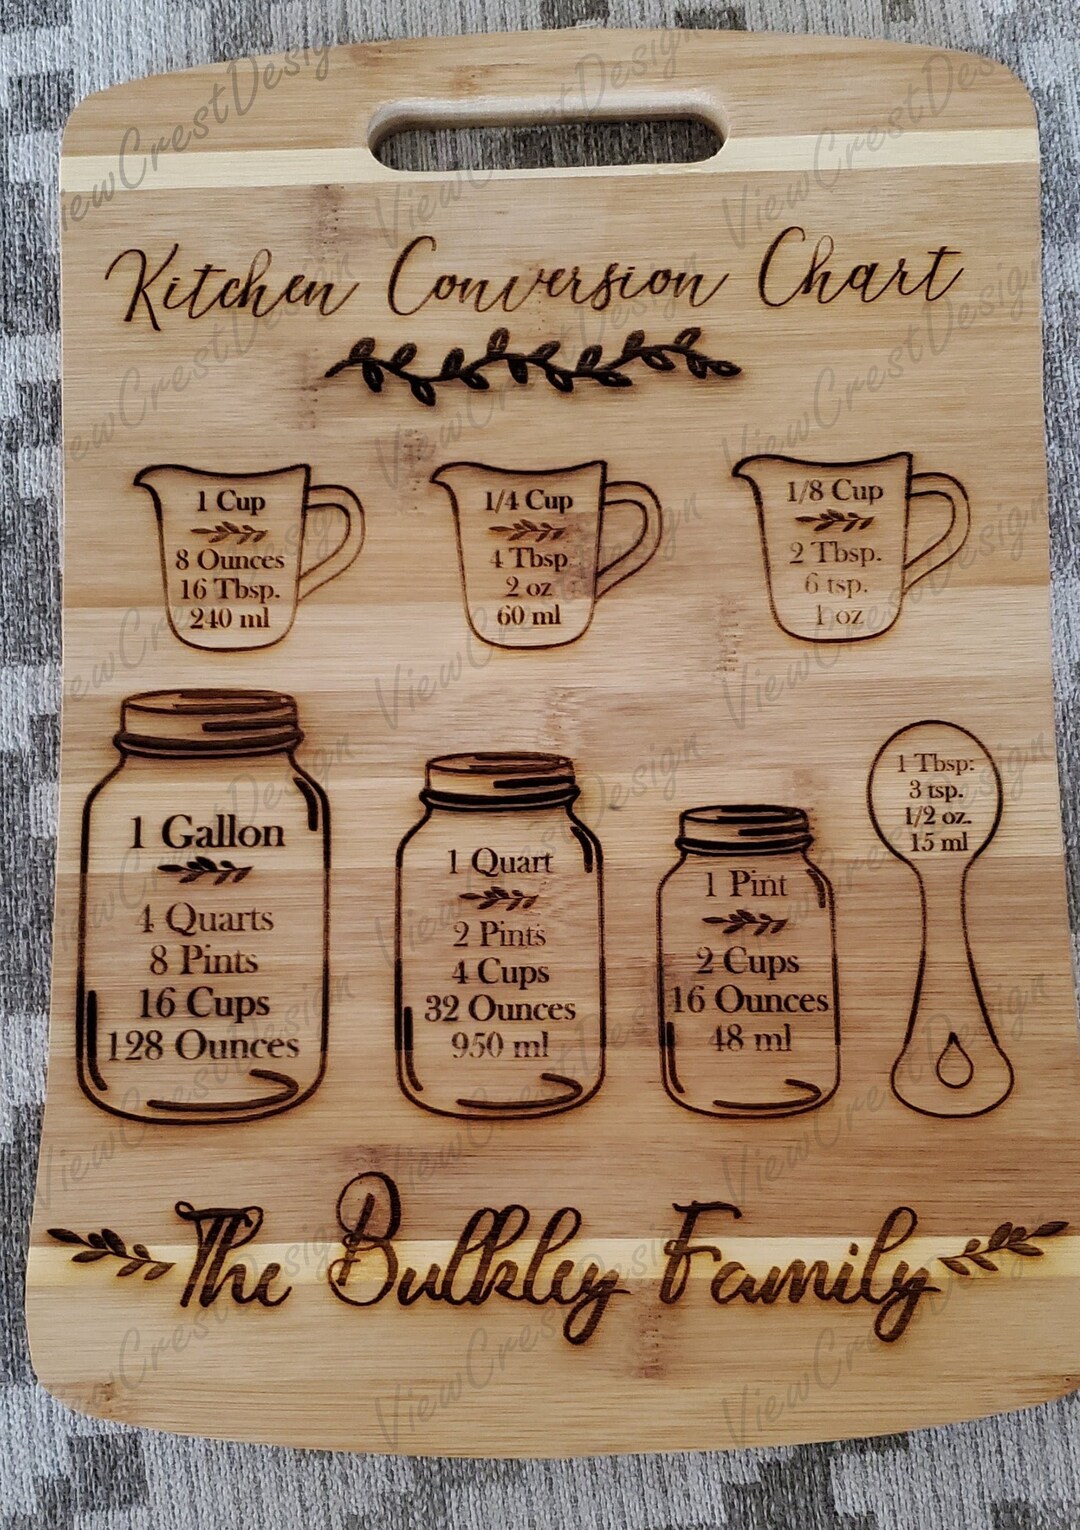 Kitchen Conversion Chart
1 Cup
8 Ounces
16 Tbsp.
240 ml
1/4 Cup
4 Tbsp
2 oz
60 ml
1/8 Cup
2 Tbsp.
6 tsp.
1 oz
1 Gallon
4 Quarts
8 Pints
16 Cups
128 Ounces
1 Quart
2 Pints
4 Cups
32 Ounces
950 ml
1 Pint
2 Cups
16 Ounces
48 ml
1 Tbsp:
3 tsp.
1/2 oz.
15 ml
The Bulkley Family
ViewCrestDesign